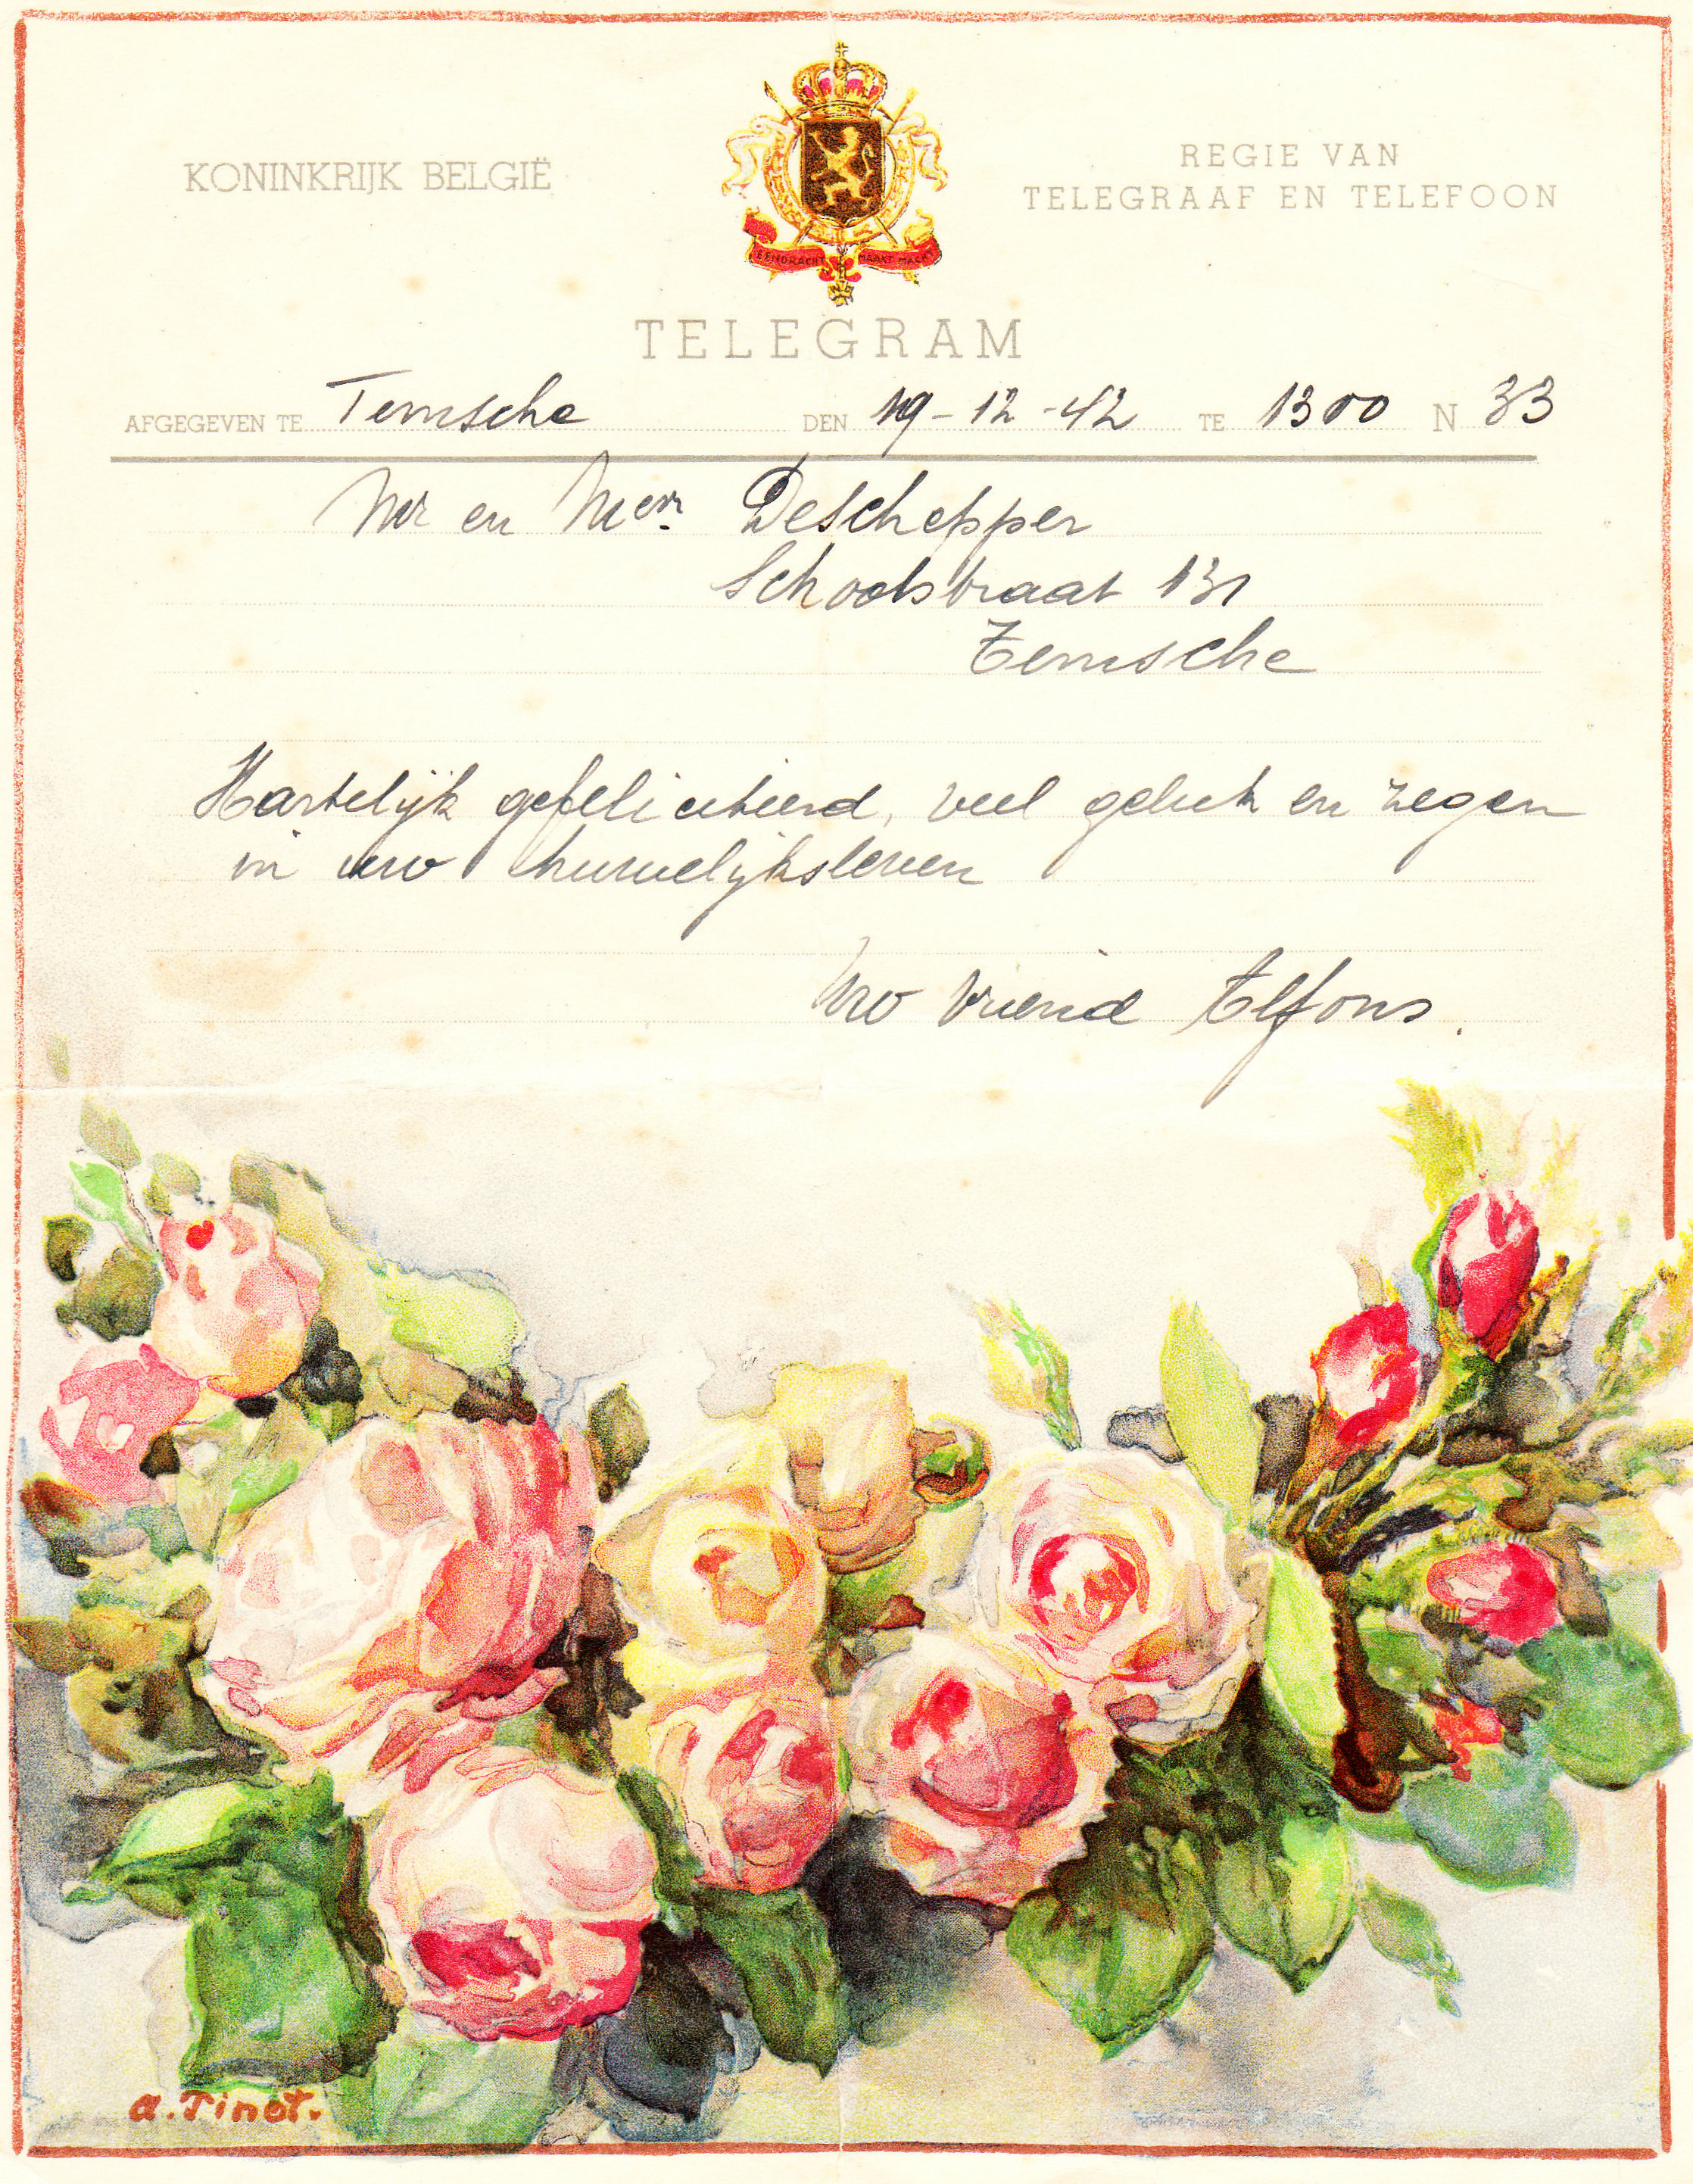 KONINKRIJK BELGIË
REGIE VAN
TELEGRAAF EN TELEFOON
EENDRACHT MAAKT MACHT
TELEGRAM
AFGEGEVEN TE Temsche DEN 19-12-42 TE 1300 N 33
Mr en Mevr. Deschepper
Schoolstraat 131
Temsche
Hartelijk gefeliciteerd, veel geluk en zegen
in uw huwelijksleven
Uw vriend Alfons.
a. Pinot.